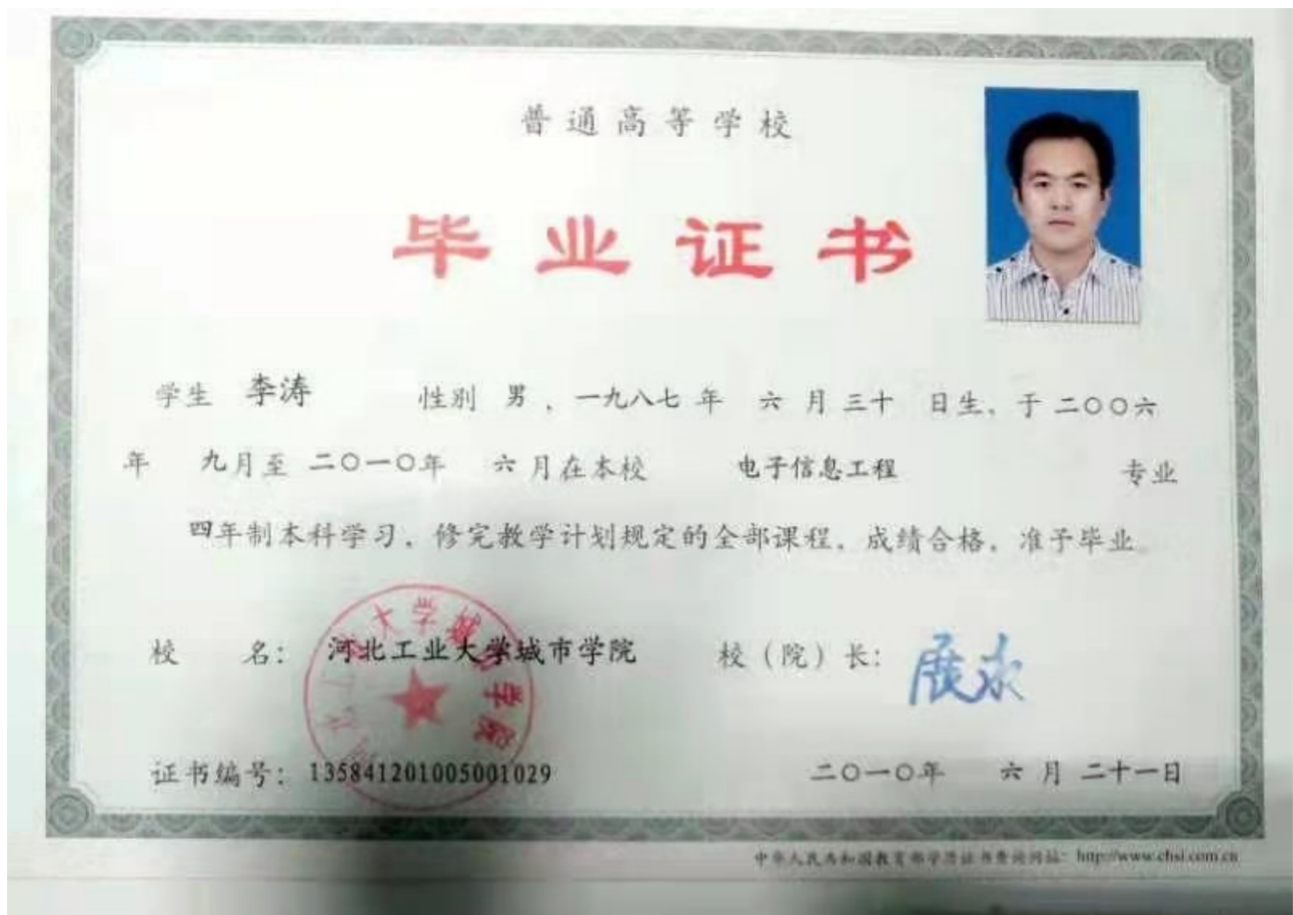 普通高等学校
毕业证书
学生 李涛 性别 男，一九八七年 六月三十 日生，于二〇〇六
年 九月至 二〇一〇年 六月在本校 电子信息工程 专业
四年制本科学习，修完教学计划规定的全部课程，成绩合格，准予毕业。
校 名： 河北工业大学城市学院 校（院）长： 展永
证书编号： 135841201005001029 二〇一〇年 六月二十一日
中华人民共和国教育部学历证书查询网址： http://www.chsi.com.cn